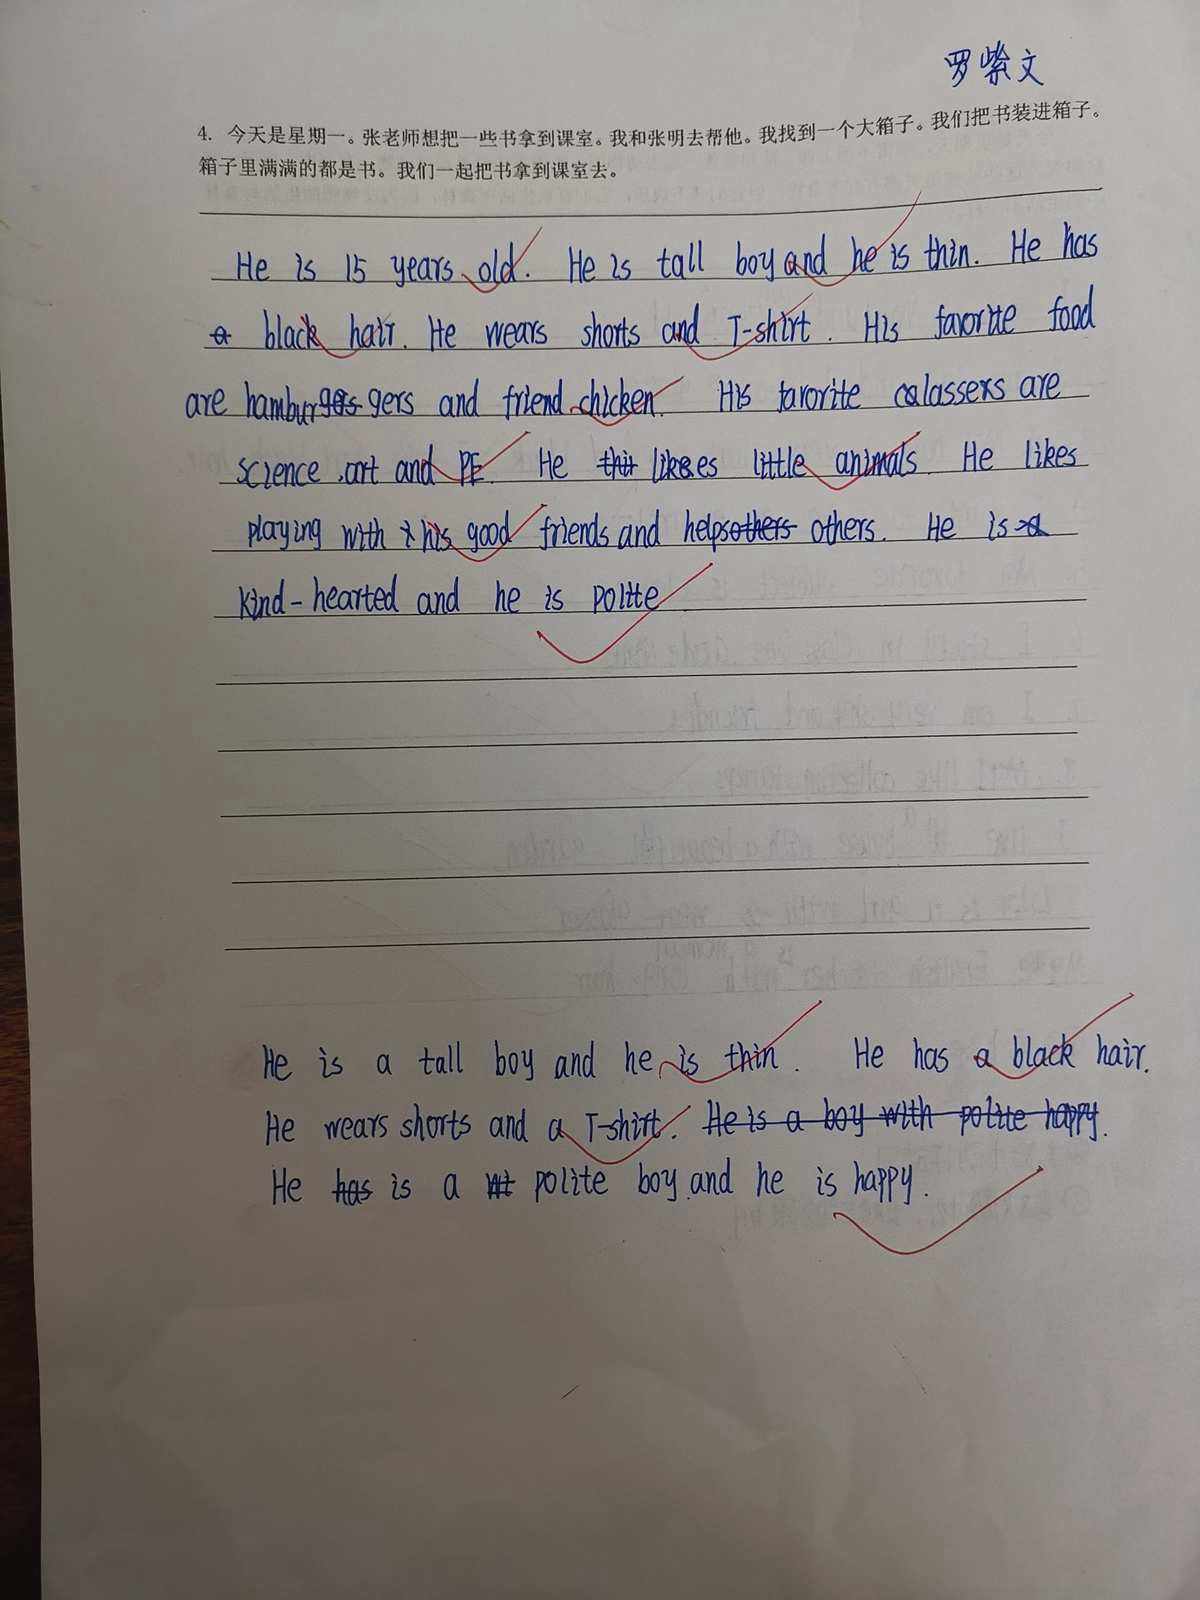 罗紫文
4. 今天是星期一。张老师想把一些书拿到课室。我和张明去帮他。我找到一个大箱子。我们把书装进箱子。
箱子里满满的都是书。我们一起把书拿到课室去。
He is 15 years old. He is tall boy and he is thin. He has
a black hair. He wears shorts and T-shirt. His favorite food
are hamburges gers and friend chicken. His favorite calassers are
science, art and PE. He thit likes little animals. He likes
playing with his good friends and helps others others. He is a
kind-hearted and he is polite
He is a tall boy and he is thin. He has a black hair.
He wears shorts and a T-shirt. He is a boy with polite happy.
He has is a polite boy and he is happy.